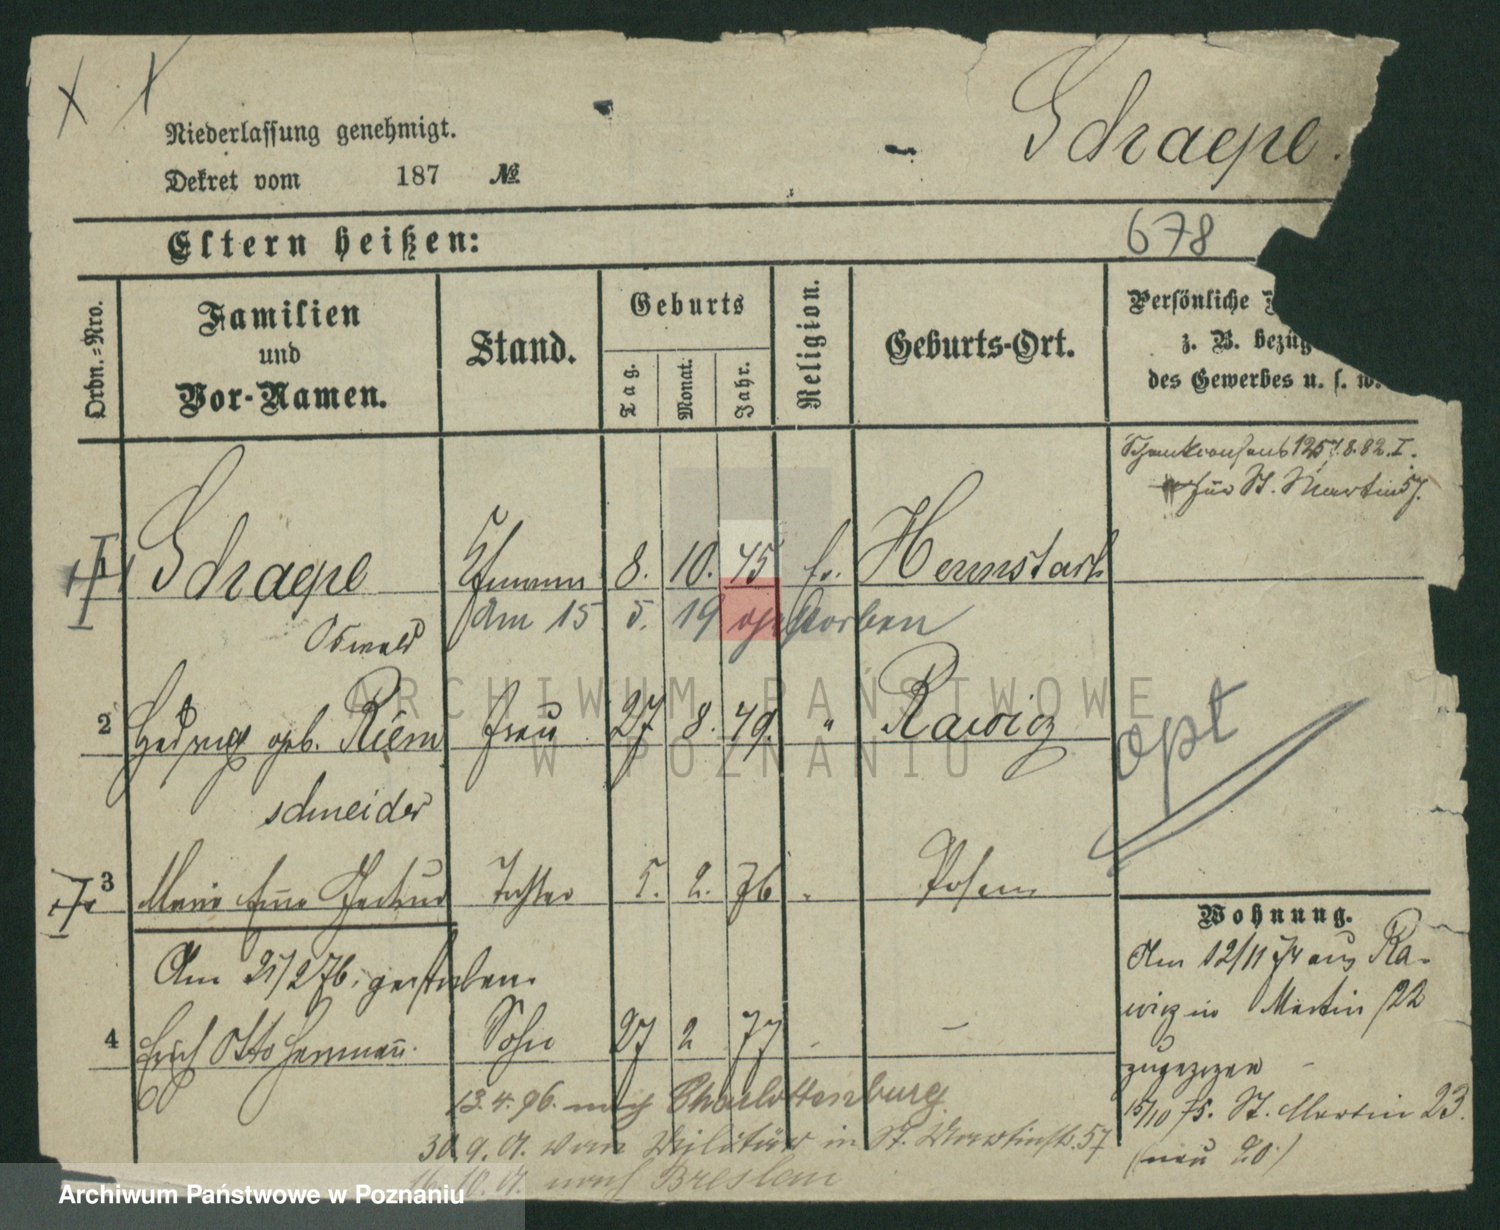 Schaepe.
Niederlassung genehmigt.
Dekret vom 187 №
Eltern heißen:
678
Ordn.=Nro.
Familien
und
Vor-Namen.
Stand.
Geburts
Tag.
Monat.
Jahr.
Religion.
Geburts-Ort.
Persönliche
z. B. bezüg
des Gewerbes u. s. w.
Schankconsens 1257.8.82.I.
für St. Martin 57.
1 Schaepe Kfmann 8. 10. 45 ev. Herrnstadt
Am 15 5. 19 gestorben
Oswald
2 Hedwig geb. Riem Frau 27 8. 49. " Rawicz
schneider
opt
3 Marie Gertrud Tochter 5. 2. 76 Posen
Am 21/2 76. gestorben.
4 Erich Otto Hermann. Sohn 27 2 77 —
13.4.96. nach Charlottenburg
30.9. vom Militär in St. Martinstr. 57
nach Breslau
Wohnung.
Am 12/11 74 aus Ra-
wicz in Martin 22
zugezogen
15/10 75. St. Martin 23.
(neu 20.)
ARCHIWUM PAŃSTWOWE
W POZNANIU
Archiwum Państwowe w Poznaniu